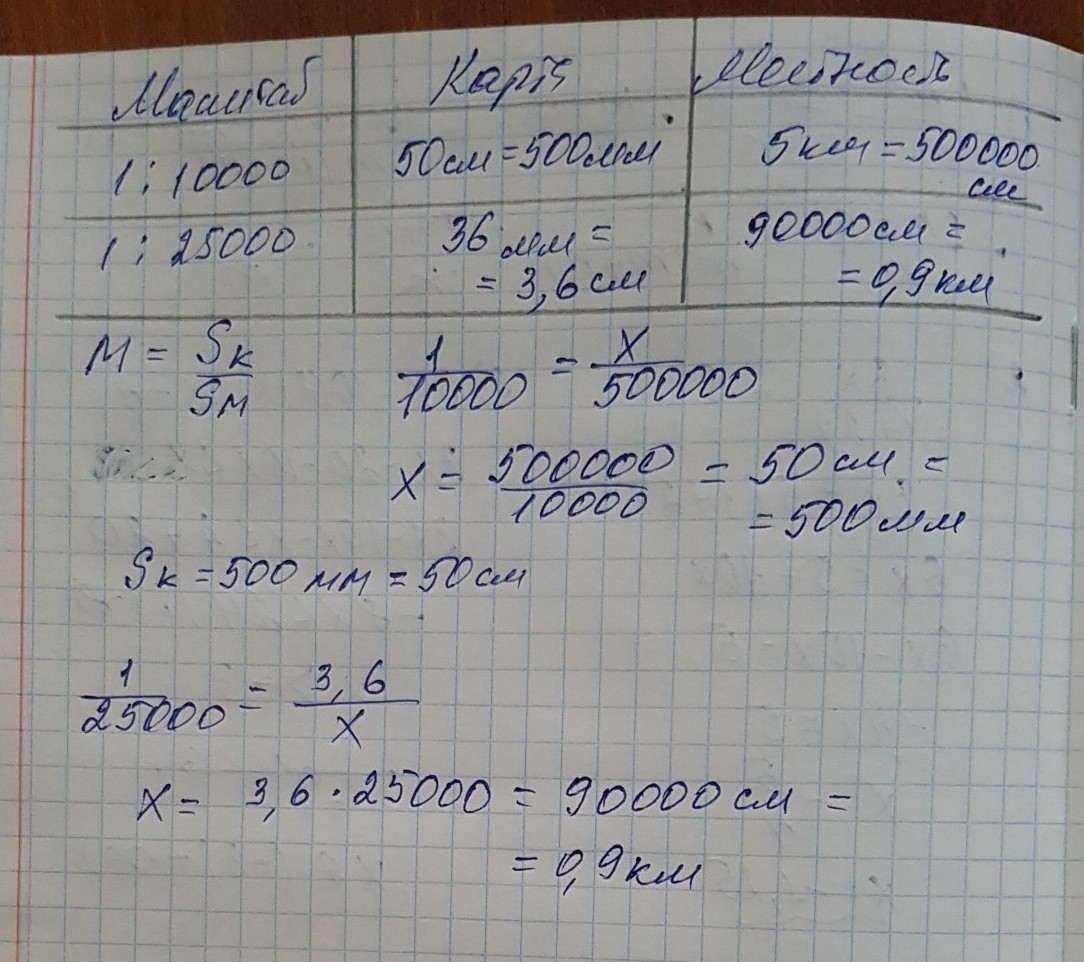 Масштаб Карта Местность
1 : 10000 50см = 500мм 5км = 500000 см
1 : 25000 36 мм = = 3,6 см 90000см = = 0,9км
М = Sк/Sм 1/10000 = X/500000
X = 500000/10000 = 50 см =
= 500мм
Sк = 500 мм = 50см
1/25000 = 3,6/X
X = 3,6 · 25000 = 90000 см =
= 0,9км